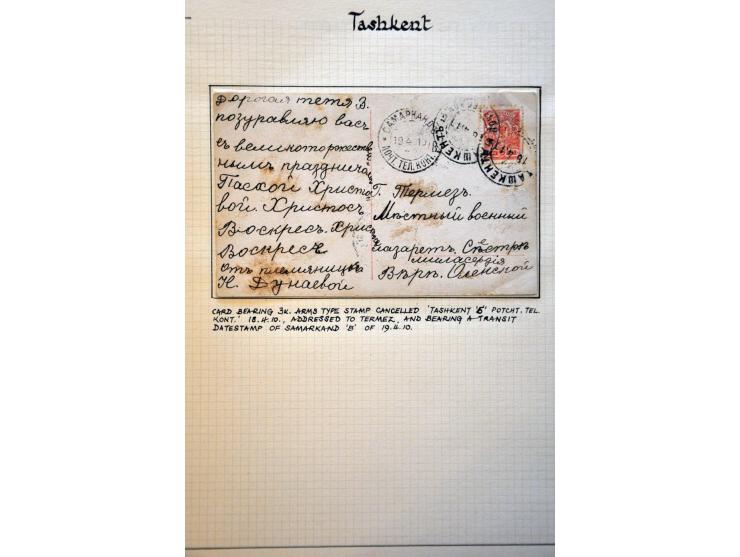 Tashkent
Дорогая тетя В.
позуравляю васъ
съ великоторжестве
нымъ праздничa
Пасхой Христо
вой. Христосъ
Воскресъ. Христ
Воскресъ
отъ племяницы
К. Дунаевой
САМАРКАНД
19.4.10
ПОЧТ. ТЕЛ. КОНТ.
ТАШКЕНТЪ
Г. Термезъ.
Мѣстный военный
лазаретъ. Сѣстръ
миласердія
Вѣрѣ Оленской
CARD BEARING 3K. ARMS TYPE STAMP CANCELLED 'TASHKENT "Б" POTCHT. TEL.
KONT.' 18.4.10., ADDRESSED TO TERMEZ, AND BEARING A TRANSIT
DATESTAMP OF SAMARKAND 'B' OF 19.4.10.